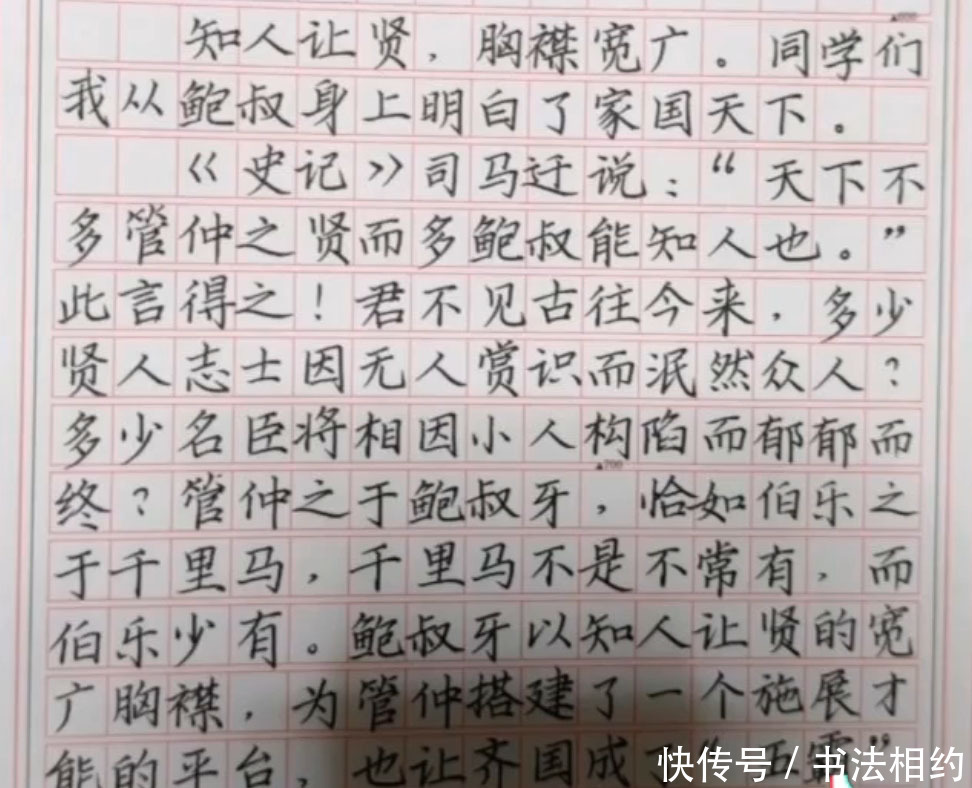 知人让贤，胸襟宽广。同学们
我从鲍叔身上明白了家国天下。
《史记》司马迁说：“天下不
多管仲之贤而多鲍叔能知人也。”
此言得之！君不见古往今来，多少
贤人志士因无人赏识而泯然众人？
多少名臣将相因小人构陷而郁郁而
▲700
终？管仲之于鲍叔牙，恰如伯乐之
于千里马，千里马不是不常有，而
伯乐少有。鲍叔牙以知人让贤的宽
广胸襟，为管仲搭建了一个施展才
能的平台，也让齐国成了“五霸”
快传号 / 书法相约